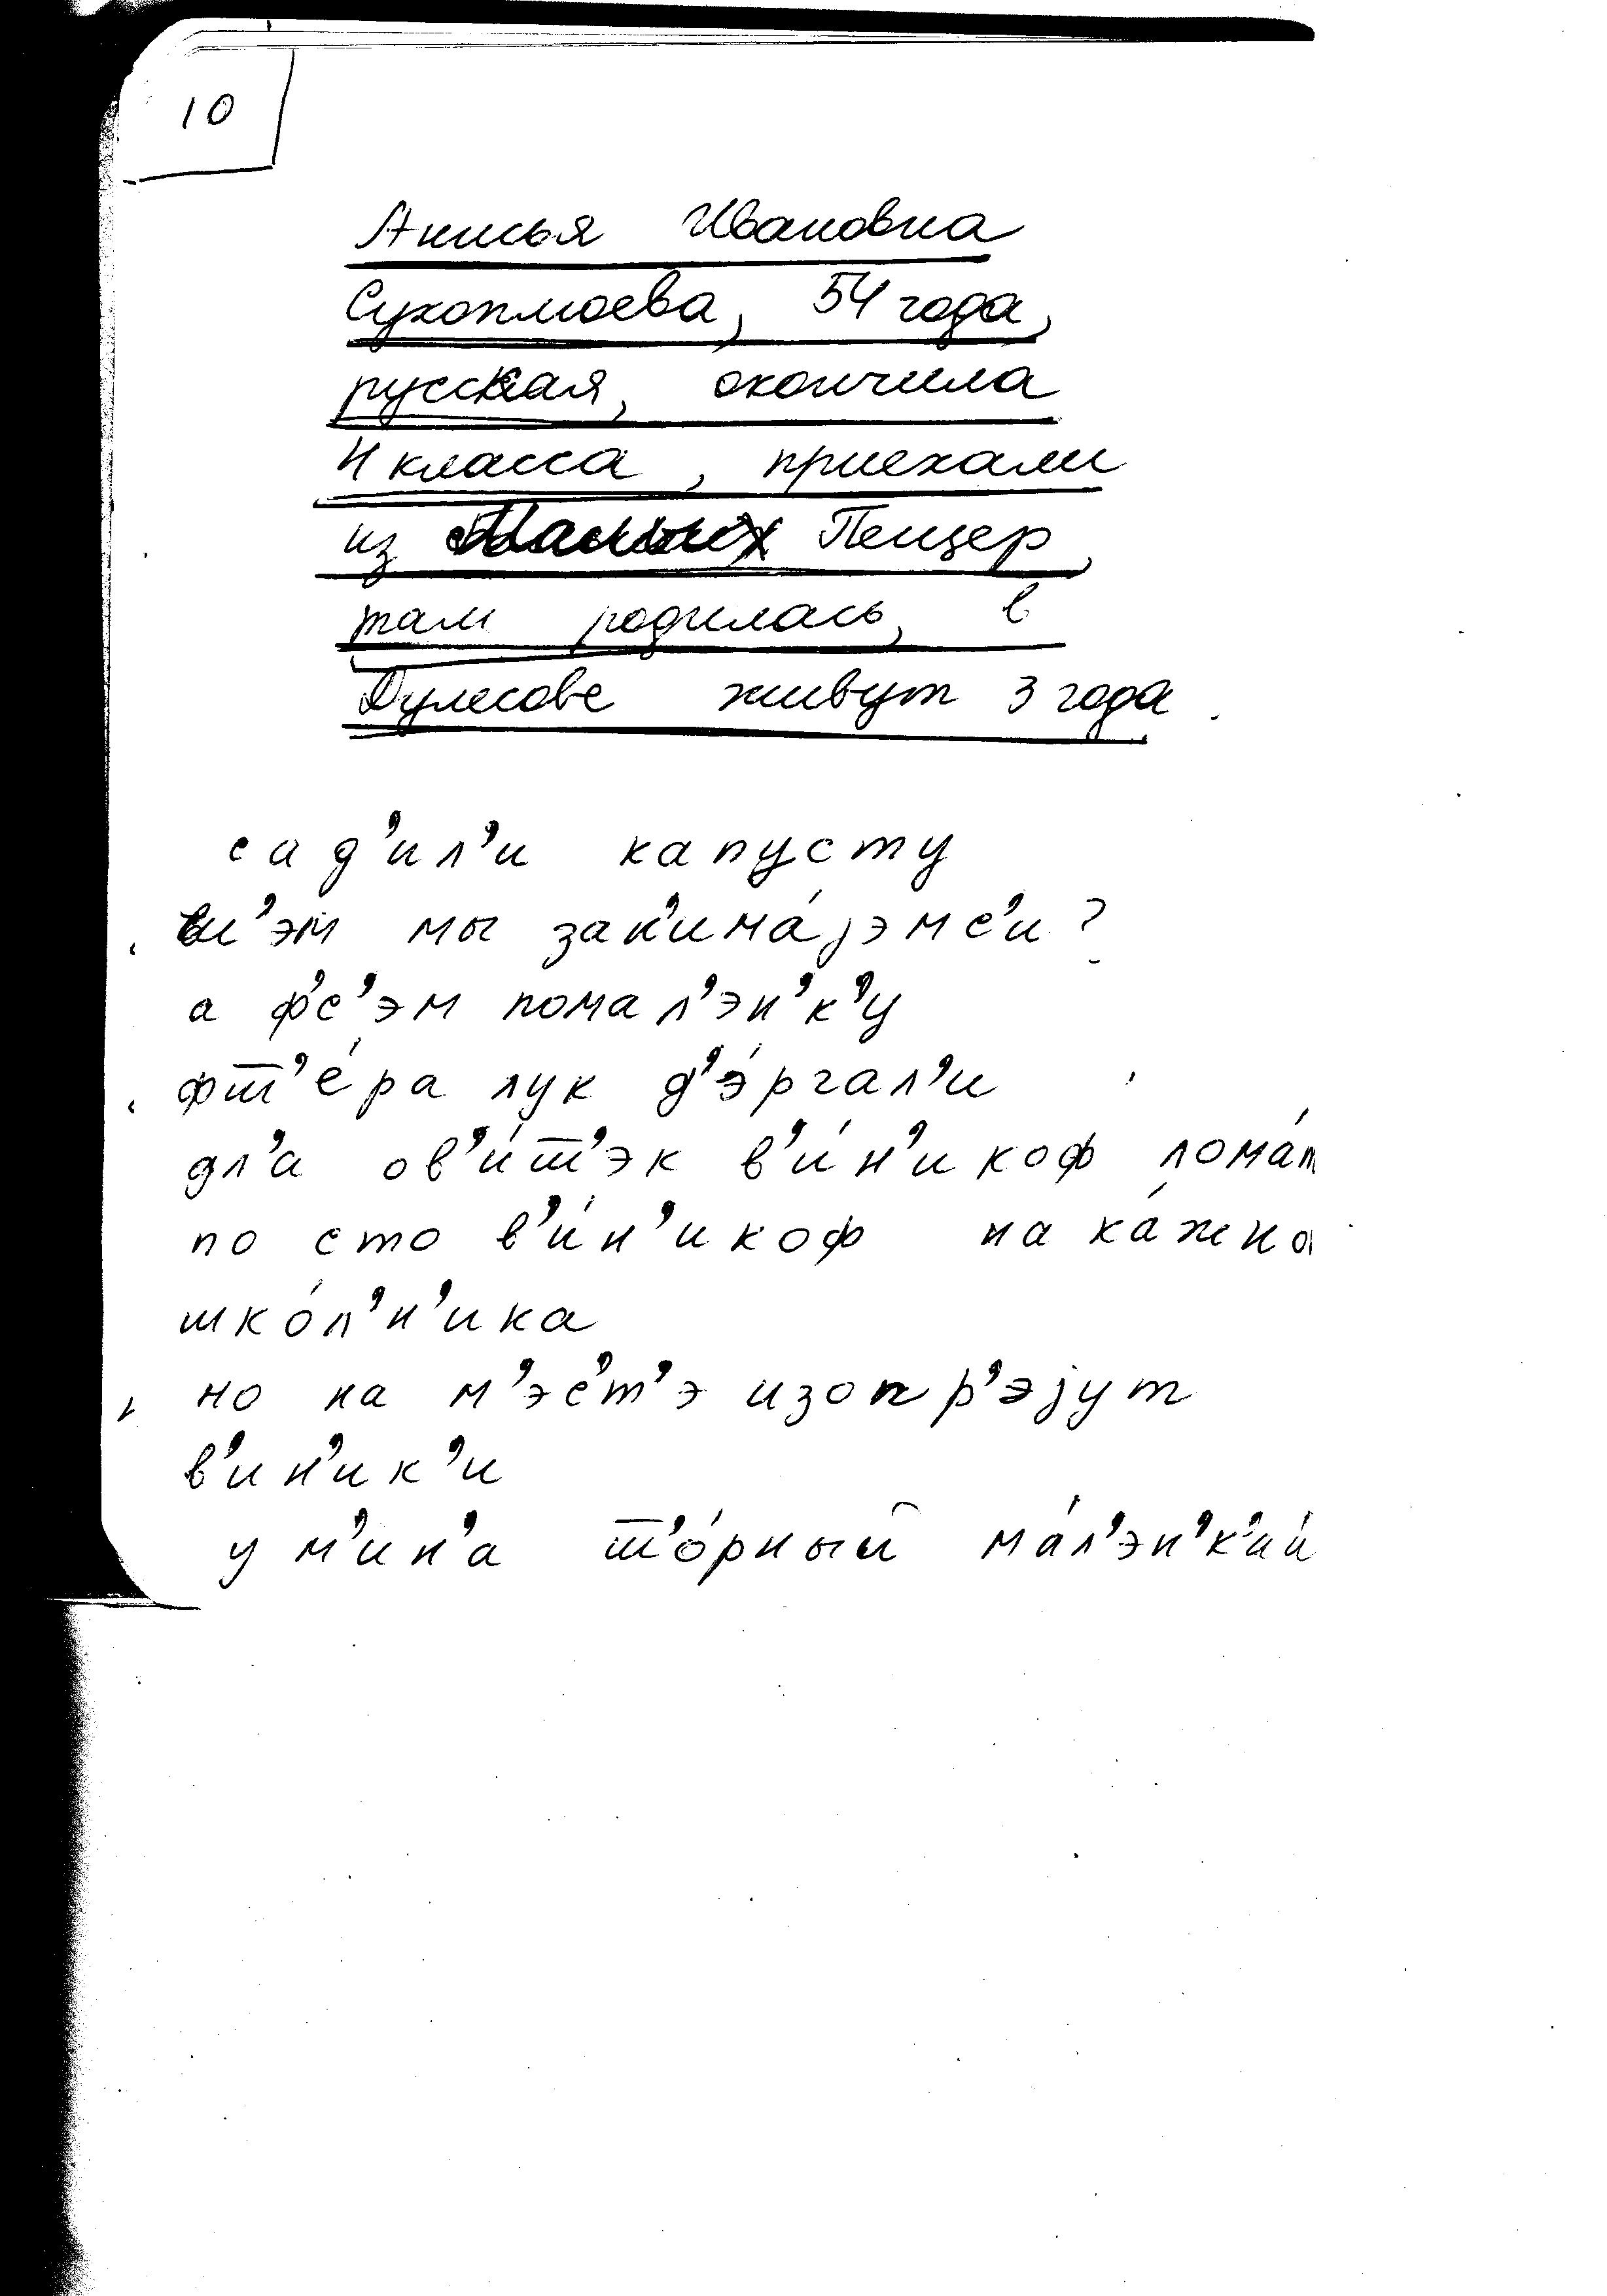 10
Анисья Ивановна
Сухоплюева, 54 года,
русская, окончила
4 класса, приехали
из Малых Пещер,
там родилась, в
Дулесове живут 3 года.
сад'ил'и капусту
ш'эм мы зан'има́jэмс'и?
а ф'с'эм помал'эн'к'у
фт'е́ра лук д'э́ргал'и
дл'а ов'и́т'эк в'и́н'икоф лома́т
по сто в'и́н'икоф на ка́жно
шко́л'н'ика
но на м'эс'т'э изопр'эjут
в'ин'ик'и
у м'ин'а т'о́рный ма́л'эн'к'ий